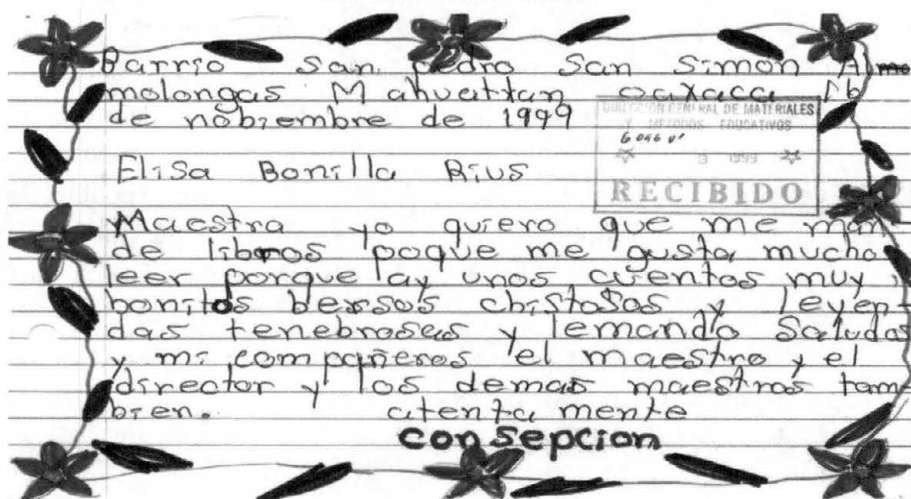 Barrio San pedro San Simon Al
molongas Mahuattan oaxaca 16
de nobiembre de 1999
DIRECCION GENERAL DE MATERIALES
Y METODOS EDUCATIVOS
1999
RECIBIDO
Elisa Bonilla Rius
Maestra yo quiero que me man
de libros poque me gusta mucho
leer porque ay unos cuentos muy
bonitos bersos chistosos y leyen-
das tenebrosas y lemando Saludos
y mi compañeros el maestro y el
director y los demas maestros tam
bien. atenta mente
consepcion